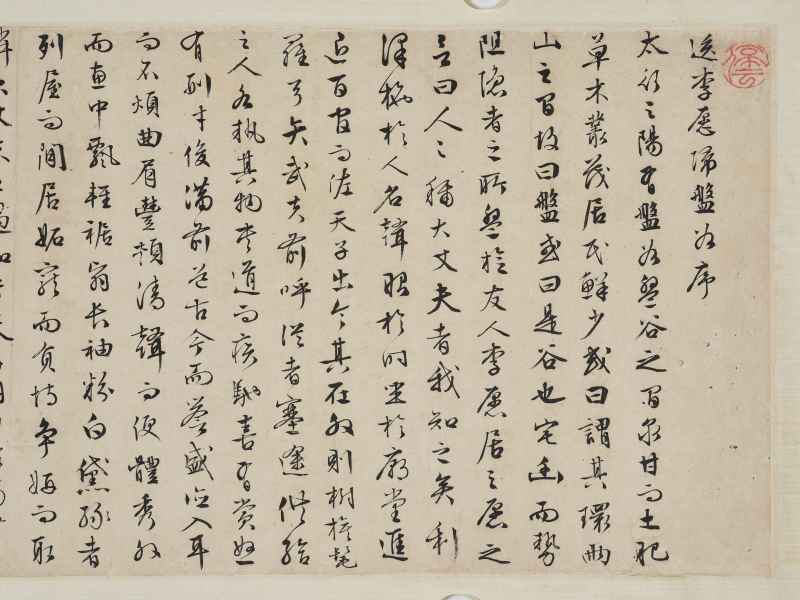 送李愿歸盤谷序
太行之陽有盤谷盤谷之間泉甘而土肥
草木叢茂居民鮮少或曰謂其環兩
山之間故曰盤或曰是谷也宅幽而勢
阻隱者之所盤旋友人李愿居之愿之
言曰人之稱大丈夫者我知之矣利
澤施於人名聲昭於时坐於廟堂進
退百官而佐天子出令其在外則樹旗旄
羅弓矢武夫前呼從者塞途供給
之人各執其物夾道而疾馳喜有賞怒
有刑才俊滿前道古今而譽盛德入耳
而不煩曲眉豐頰清聲而便體秀外
而惠中飄輕裾翳長袖粉白黛綠者
列屋而閒居妬寵而負恃爭妍而取